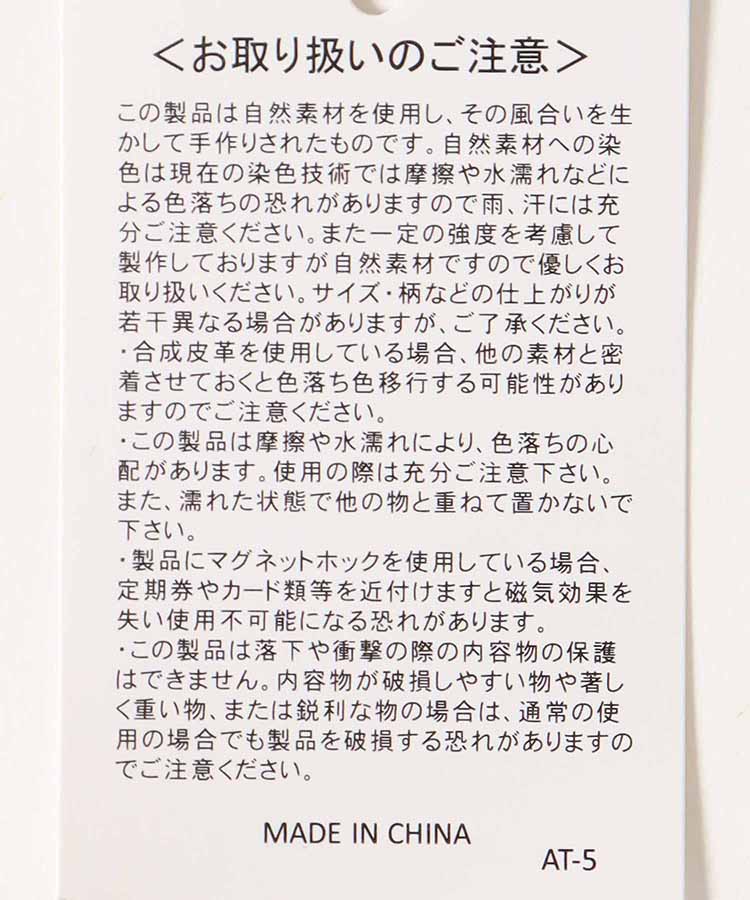 ＜お取り扱いのご注意＞
この製品は自然素材を使用し、その風合いを生
かして手作りされたものです。自然素材への染
色は現在の染色技術では摩擦や水濡れなどに
よる色落ちの恐れがありますので雨、汗には充
分ご注意ください。また一定の強度を考慮して
製作しておりますが自然素材ですので優しくお
取り扱いください。サイズ・柄などの仕上がりが
若干異なる場合がありますが、ご了承ください。
・合成皮革を使用している場合、他の素材と密
着させておくと色落ち色移行する可能性があり
ますのでご注意ください。
・この製品は摩擦や水濡れにより、色落ちの心
配があります。使用の際は充分ご注意下さい。
また、濡れた状態で他の物と重ねて置かないで
下さい。
・製品にマグネットホックを使用している場合、
定期券やカード類等を近付けますと磁気効果を
失い使用不可能になる恐れがあります。
・この製品は落下や衝撃の際の内容物の保護
はできません。内容物が破損しやすい物や著し
く重い物、または鋭利な物の場合は、通常の使
用の場合でも製品を破損する恐れがありますの
でご注意ください。
MADE IN CHINA
AT-5